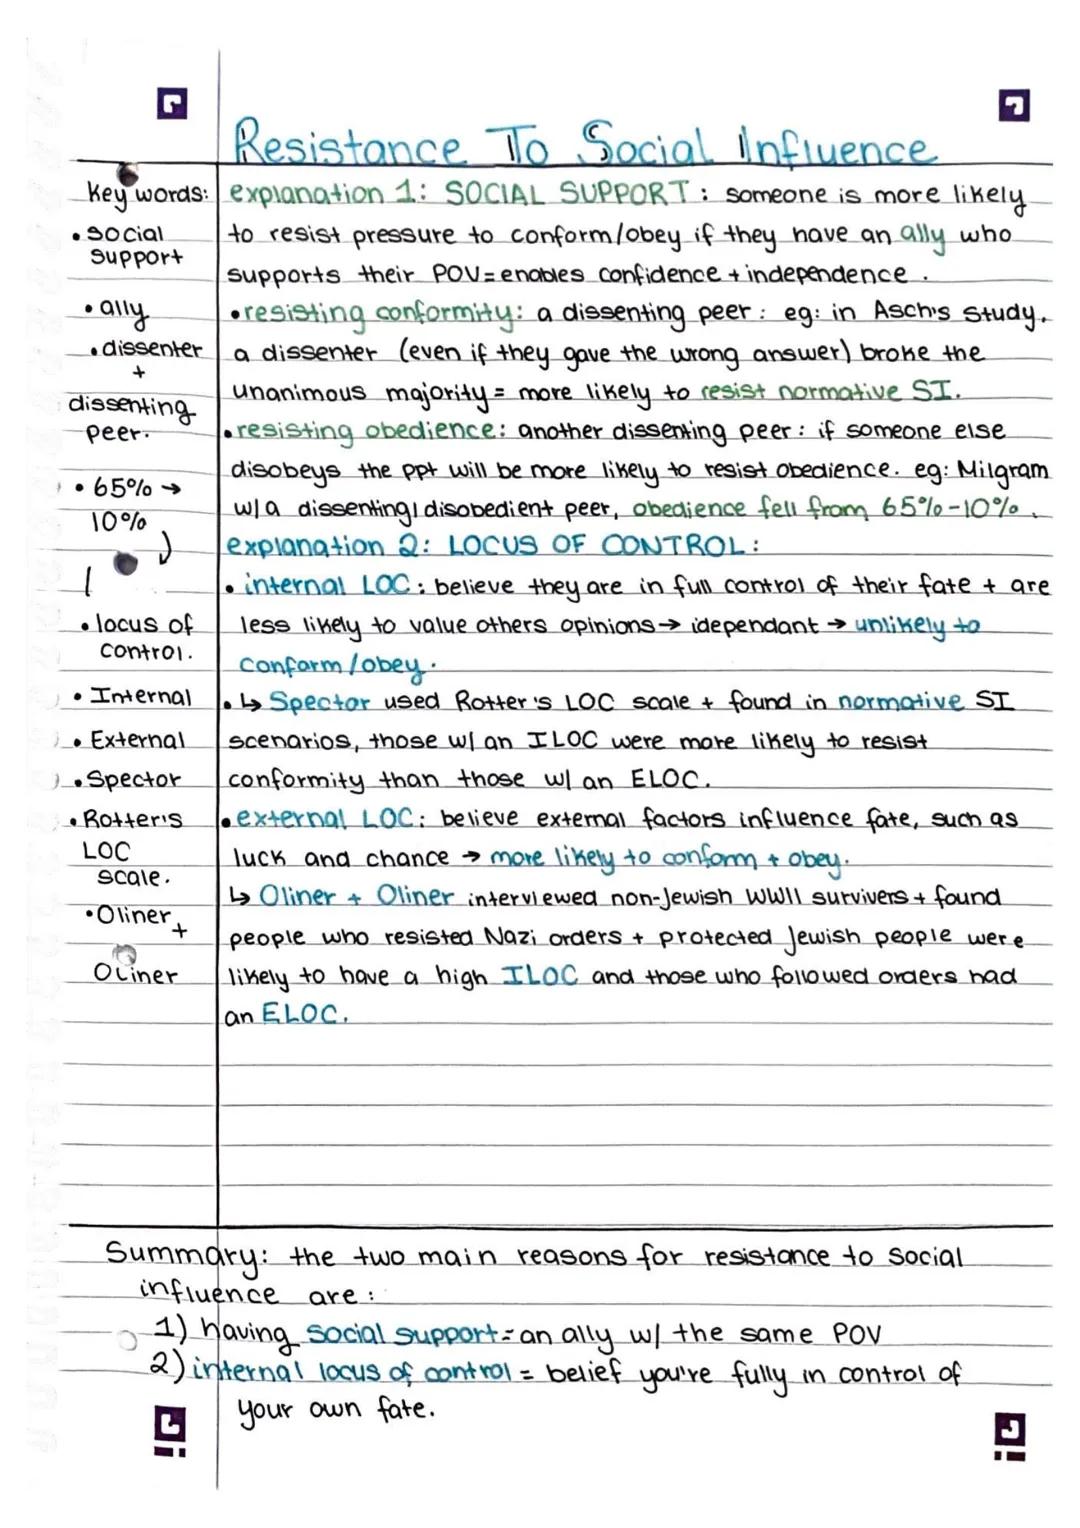 Resistance To Social Influence
Key words:
• social
support
• ally
• dissenter
+
dissenting
peer.
• 65% →
10%
• locus of
control.
• Internal
• External
• Spector
• Rotter's
LOC
scale.
• Oliner +
Oliner
explanation 1: SOCIAL SUPPORT: someone is more likely
to resist pressure to conform/obey if they have an ally who
supports their POV = enables confidence + independence.
• resisting conformity: a dissenting peer: eg: in Asch's study,
a dissenter (even if they gave the wrong answer) broke the
unanimous majority = more likely to resist normative SI.
• resisting obedience: another dissenting peer: if someone else
disobeys the ppt will be more likely to resist obedience. eg: Milgram
w/a dissenting/disobedient peer, obedience fell from 65%-10%.
explanation 2: LOCUS OF CONTROL:
• internal LOC: believe they are in full control of their fate + are
less likely to value others opinions → idependant → unlikely to
conform/obey.
• ↳ Spector used Rotter's LOC scale + found in normative SI
scenarios, those w/ an ILOC were more likely to resist
conformity than those w/ an ELOC.
• external LOC: believe external factors influence fate, such as
luck and chance → more likely to conform + obey.
↳ Oliner + Oliner interviewed non-Jewish WWII survivers + found
people who resisted Nazi orders + protected Jewish people were
likely to have a high ILOC and those who followed orders had
an ELOC.
Summary: the two main reasons for resistance to social
influence are:
1) having social support = an ally w/ the same POV
2) internal locus of control = belief you're fully in control of
your own fate.